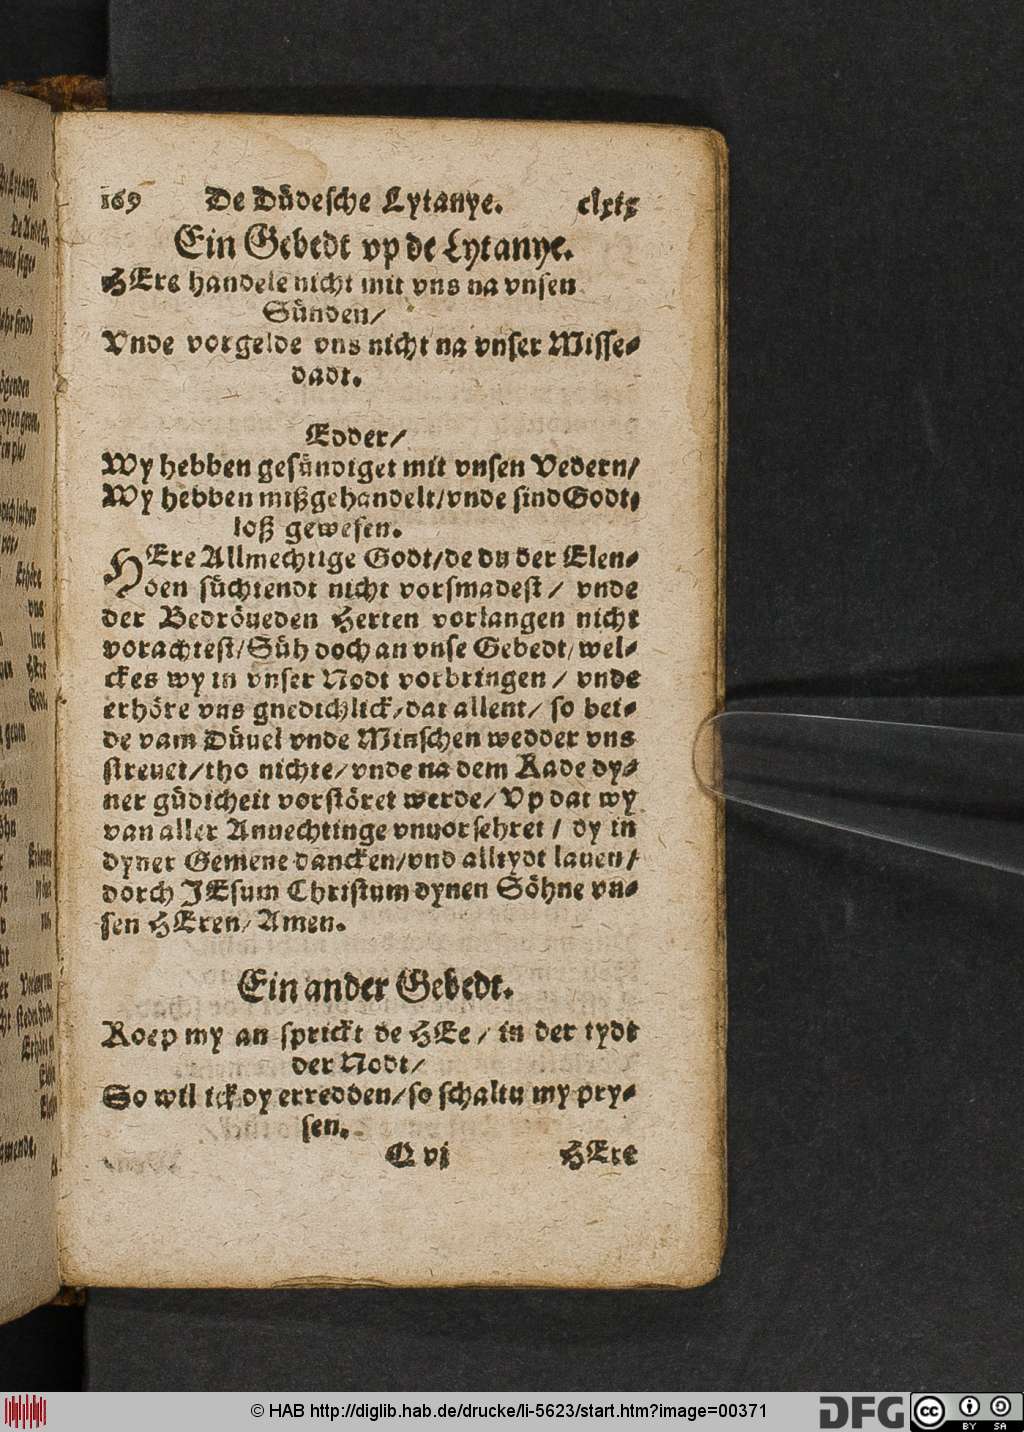 169 De Düdesche Lytanye. clxix
Ein Gebedt vp de Lytanye.
HEre handele nicht mit vns na vnsen
Sünden/
Vnde vorgelde vns nicht na vnser Misse-
dadt.
Edder/
Wy hebben gesündiget mit vnsen Vedern/
Wy hebben mißgehandelt/vnde sind Godt-
loß gewesen.
HEre Allmechtige Godt/de du der Elen-
den süchtendt nicht vorsmadest/ vnde
der Bedröueden Herten vorlangen nicht
vorachtest/Süh doch an vnse Gebedt/wel-
ckes wy in vnser Nodt vorbringen/ vnde
erhöre vns gnedichlick/dat allent/ so bei-
de vam Düuel vnde Minschen wedder vns
streuet/tho nichte/vnde na dem Rade dy-
ner güdicheit vorstöret werde/Vp dat wy
van aller Anuechtinge vnuorsehret/ dy in
dyner Gemene dancken/vnd alltydt lauen/
dorch JEsum Christum dynen Söhne vn-
sen HEren/Amen.
Ein ander Gebedt.
Roep my an sprickt de HEe/ in der tydt
der Nodt/
So wil ick dy erredden/so schaltu my pry-
sen.
Q vj HEre
© HAB http://diglib.hab.de/drucke/li-5623/start.htm?image=00371
DFG
cc BY SA